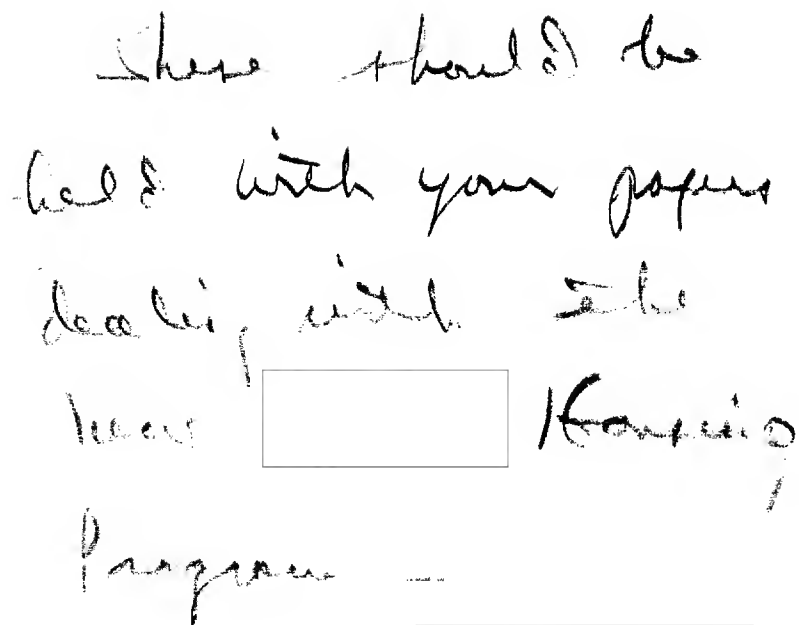 These should be
held with your papers
dealing with the
new Housing
Program —